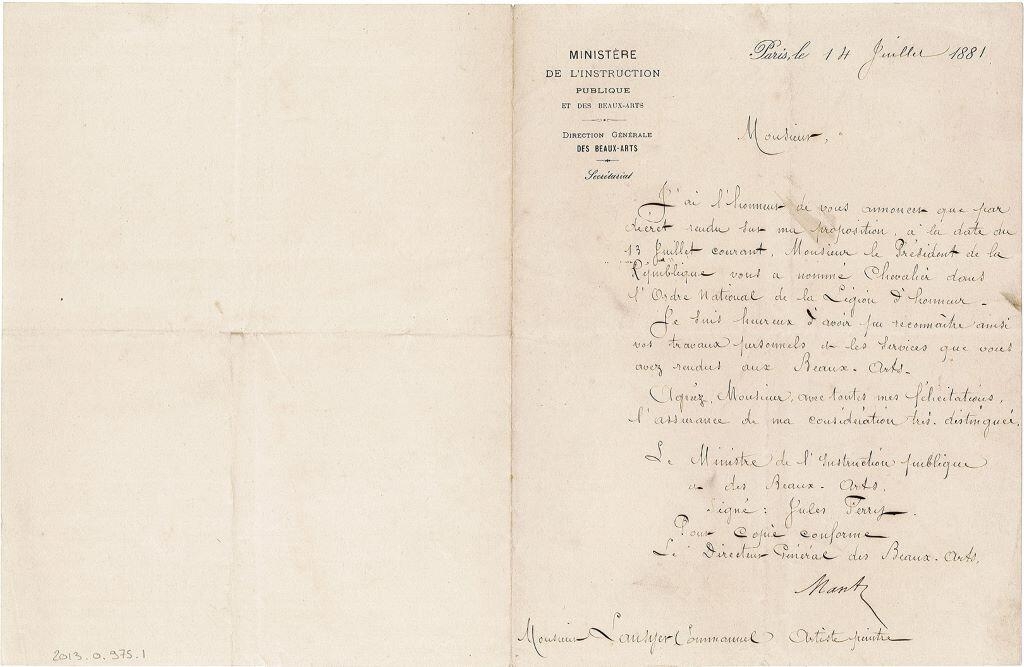 MINISTÈRE
DE L'INSTRUCTION
PUBLIQUE
ET DES BEAUX-ARTS
DIRECTION GÉNÉRALE
DES BEAUX-ARTS
Secrétariat
Paris, le 14 Juillet 1881
Monsieur,
J'ai l'honneur de vous annoncer que par
décret rendu sur ma proposition, à la date du
13 Juillet courant, Monsieur le Président de la
République vous a nommé Chevalier dans
l'Ordre National de la Légion d'honneur.
Je suis heureux d'avoir pu reconnaître ainsi
vos travaux personnels et les services que vous
avez rendus aux Beaux-Arts.
Agréez, Monsieur, avec toutes mes félicitations,
l'assurance de ma considération très distinguée.
Le Ministre de l'Instruction publique
et des Beaux-Arts.
Signé: Jules Ferry.
Pour copie conforme
Le Directeur Général des Beaux-Arts,
Mantz
Monsieur Lansyer (Emmanuel) Artiste peintre
2013.0.975.1